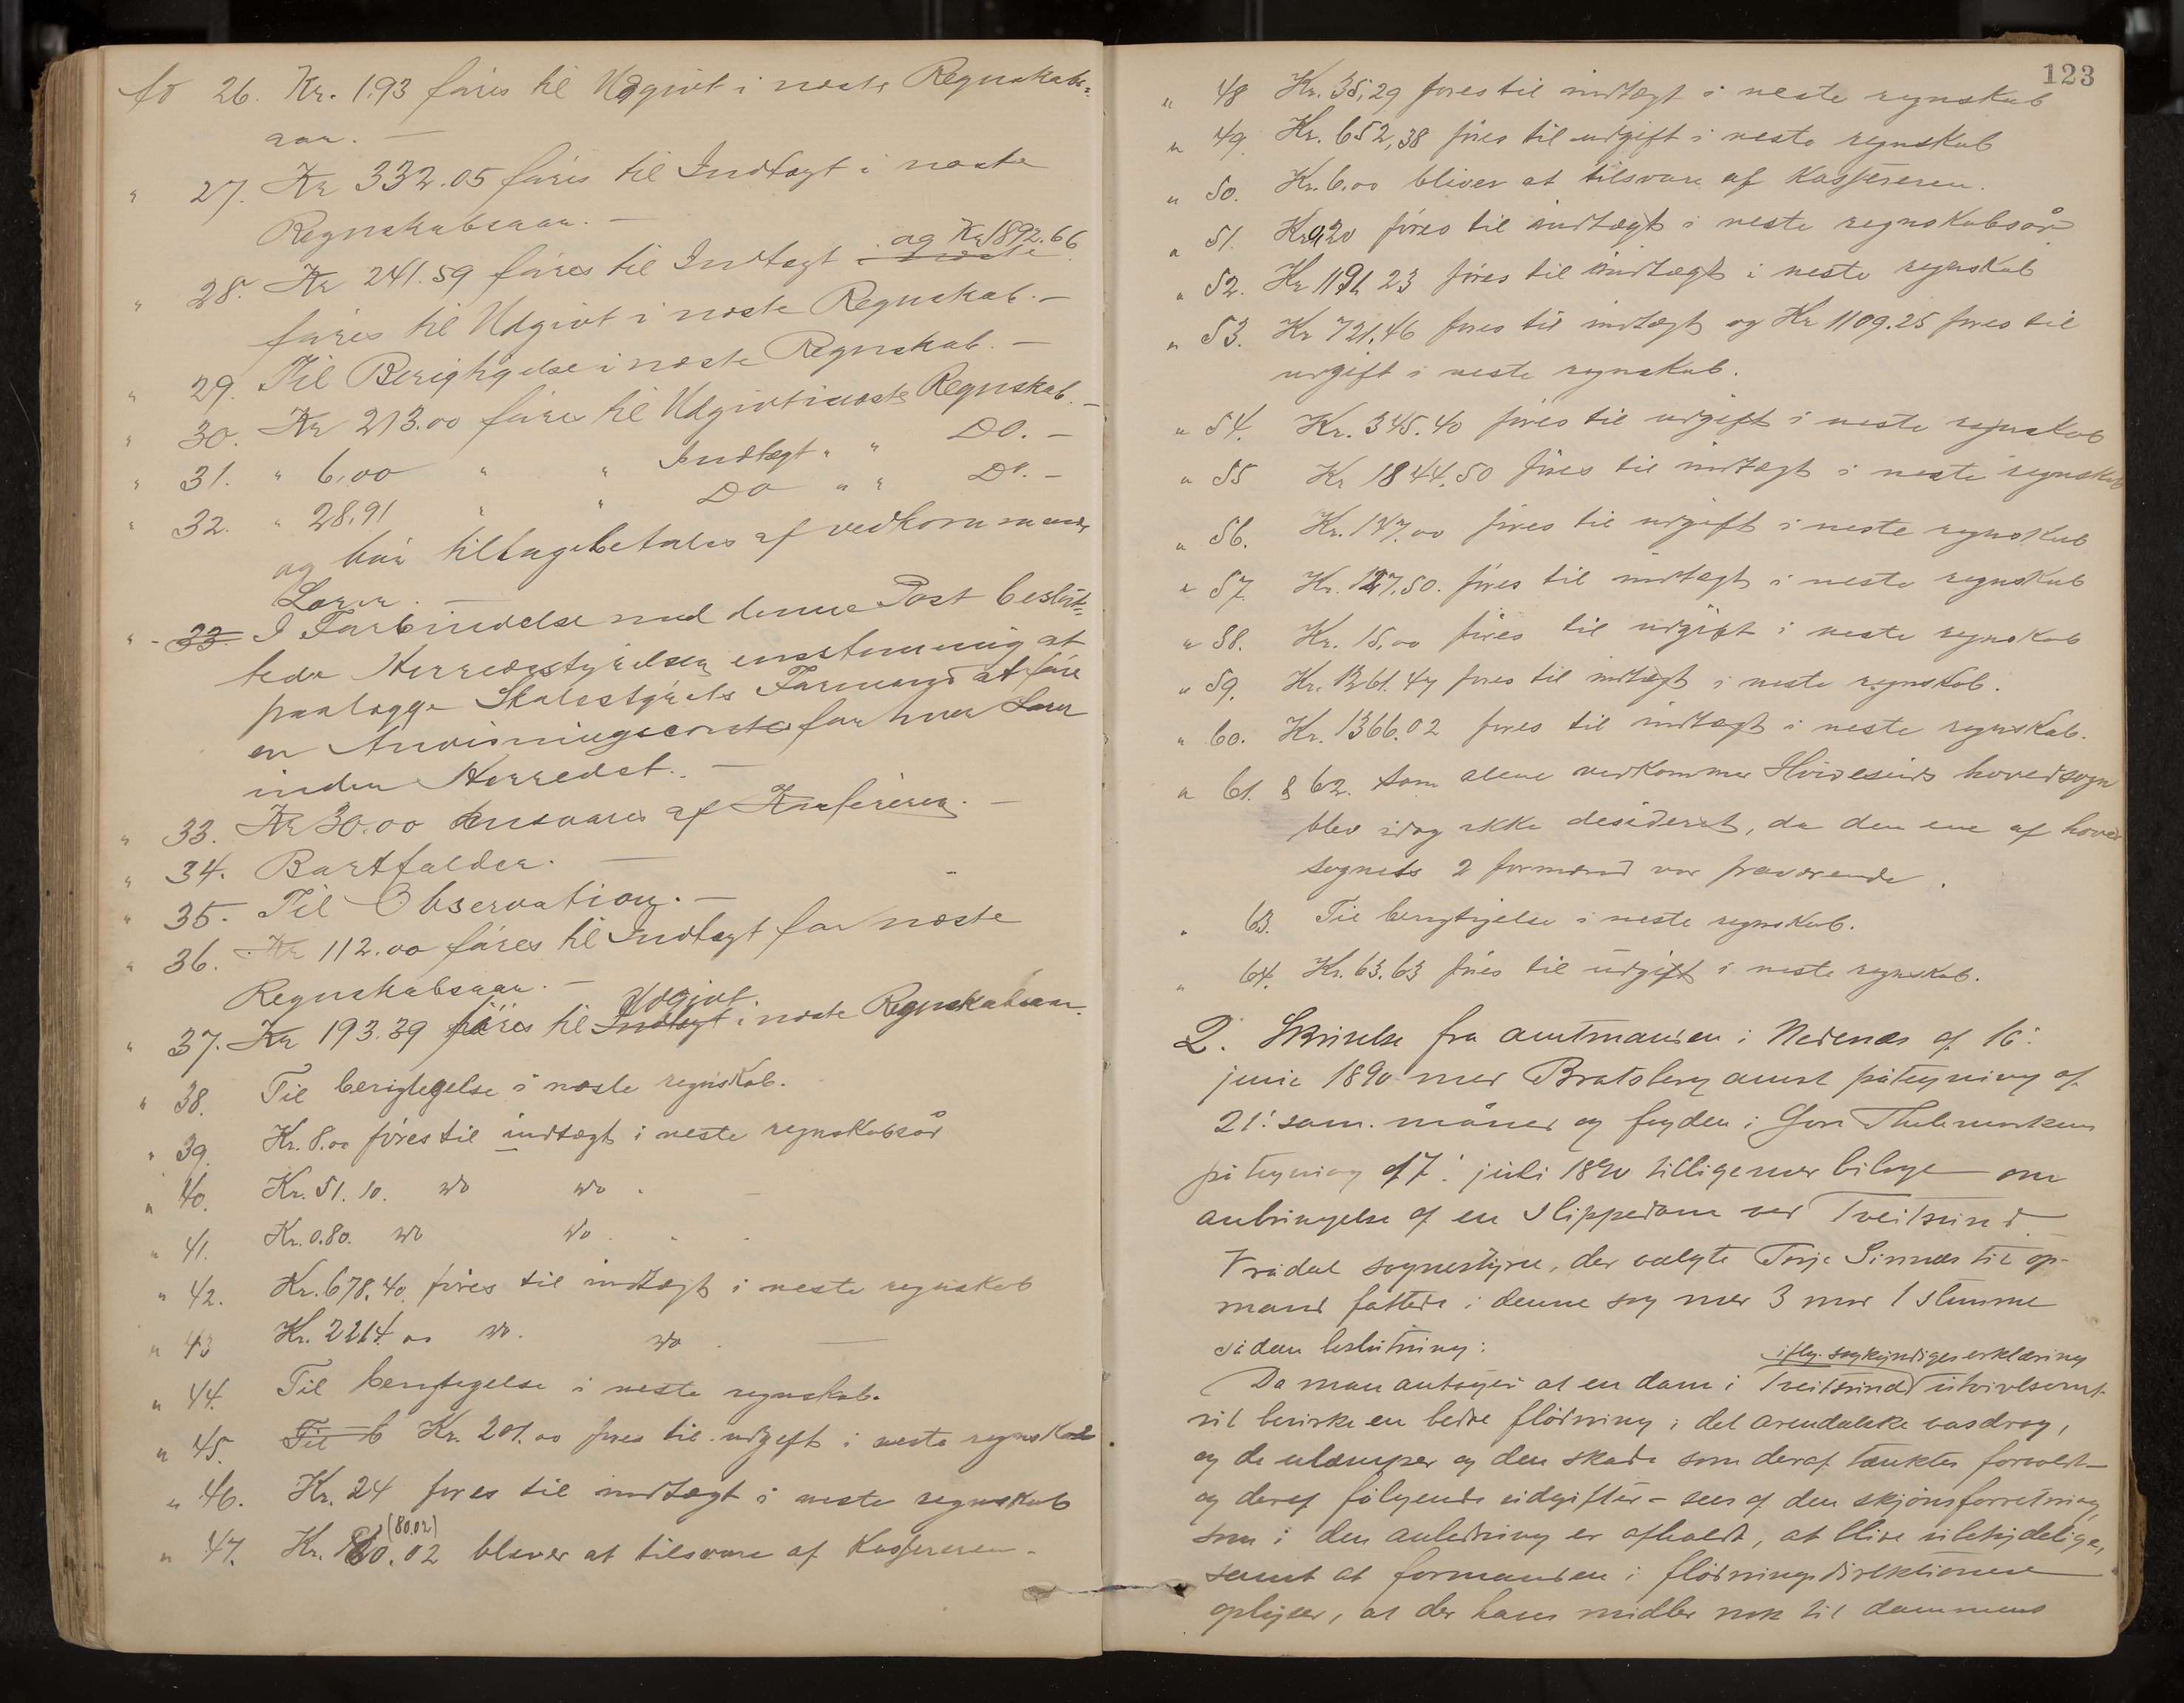 No 26. Kr. 1.93 føres til Udgivt i næste Regnskabs-
aar. —
" 27. Kr 332.05 føres til Indtægt i næste
Regnskabsaar. —
og Kr 1892.66
" 28. Kr 241.59 føres til Indtægt i næste
føres til Udgivt i næste Regnskab. —
" 29. Til Berigtigelse i næste Regnskab. —
" 30. Kr 213.00 føres til Udgivt i næste Regnskab. —
" 31. " 6,00 " " Indtægt " " Do. —
" 32. " 28,91 " " Do " " Do. —
og bør tilbagebetales af vedkommende
Lærer. —
" - 33. I Forbindelse med denne Post beslut-
tede Herredsstyrelsen enstemmig at
paalægge Skolestyrets Formand at føre
en Anvisnings for hver Lærer
inden Herredet. —
" 33. Kr 30.00 ansvares af Kasereren. —
" 34. Bortfalder. —
" 35. Til Observation. —
" 36. Kr 112.00 føres til Indtægt for næste
Regnskabsaar. —
Udgivt.
" 37. Kr 193.39 føres til Indtægt i næste Regnskabsaar.
" 38. Til berigtegelse i næste regnskab.
" 39. Kr. 8.00 føres til indtægt i neste regnskabsår
" 40. Kr. 51.10. do do .
" 41. Kr. 0.80. do do .
" 42. Kr. 678.40. føres til indtægt i neste regnskab
" 43 Kr. 2214.00 do. do .
" 44. Til berigtegelse i neste regnskab.
" 45. Til b Kr. 201.00 føres til udgift i neste regnskab
" 46. Kr. 24 føres til indtægt i neste regnskab
(80.02)
" 47. Kr. 80.02 bliver at tilsvare af Kassereren.
123
" 48 Kr. 35,29 føres til indtægt i neste regnskab
" 49. Kr. 652,38 føres til udgift i neste regnskab
" 50. Kr. 6.00 bliver at tilsvare af Kassereren.
" 51. Kr 0,20 føres til indtægt i neste regnskabsår
" 52. Kr 1191.23 føres til indtægt i neste regnskab
" 53. Kr 721.46 føres til indtægt og Kr 1109.25 føres til
udgift i neste regnskab.
" 54. Kr. 345.40 føres til udgift i neste regnskab
" 55 Kr 1844.50 føres til indtægt i neste regnskab
" 56. Kr. 147.00 føres til udgift i neste regnskab
" 57. Kr. 127.50. føres til indtægt i neste regnskab
" 58. Kr. 15.00 føres til udgift i neste regnskab
" 59. Kr. 1261.47 føres til indtægt i neste regnskab.
" 60. Kr. 1366.02 føres til indtægt i neste regnskab.
" 61. & 62. Som alene vedkommer Hvideseids hovedsogn
blev idag ikke desideret, da den ene af hoved-
sognets 2 formænd var fraværende.
" 63. Til berigtigelse i neste regnskab.
" 64. Kr. 63.63 føres til udgift i neste regnskab.
2. Skrivelse fra amtmanden i Nedenæs af 16:
junii 1890 med Bratsberg amts påtegning af
21: sam. måned og fogden i Øvre Thelemarkens
påtegning af 7: juli 1890 tilligemed bilage om
anbringelse af en slippedam ved Tveitsund
Vrådal sognestyre, der valgte Torje Sinnæs til op-
mand fattede i denne sag med 3 mod 1 stemme
sådan beslutning:
iflg. sagkyndiges erklæring
Da man antager at en dam i Tveitsund utvivlsomt
vil bevirke en bedre flødning i det arendalske vasdrag,
og de ulemper og den skade som deraf tænktes forvoldt —
og deraf følgende udgifter — sees af den skjønsforretning,
som i den anledning er afholdt, at blive ubetydelige,
samt at formanden i flødningsdirektionen
oplyser, at der haves midler nok til dammens